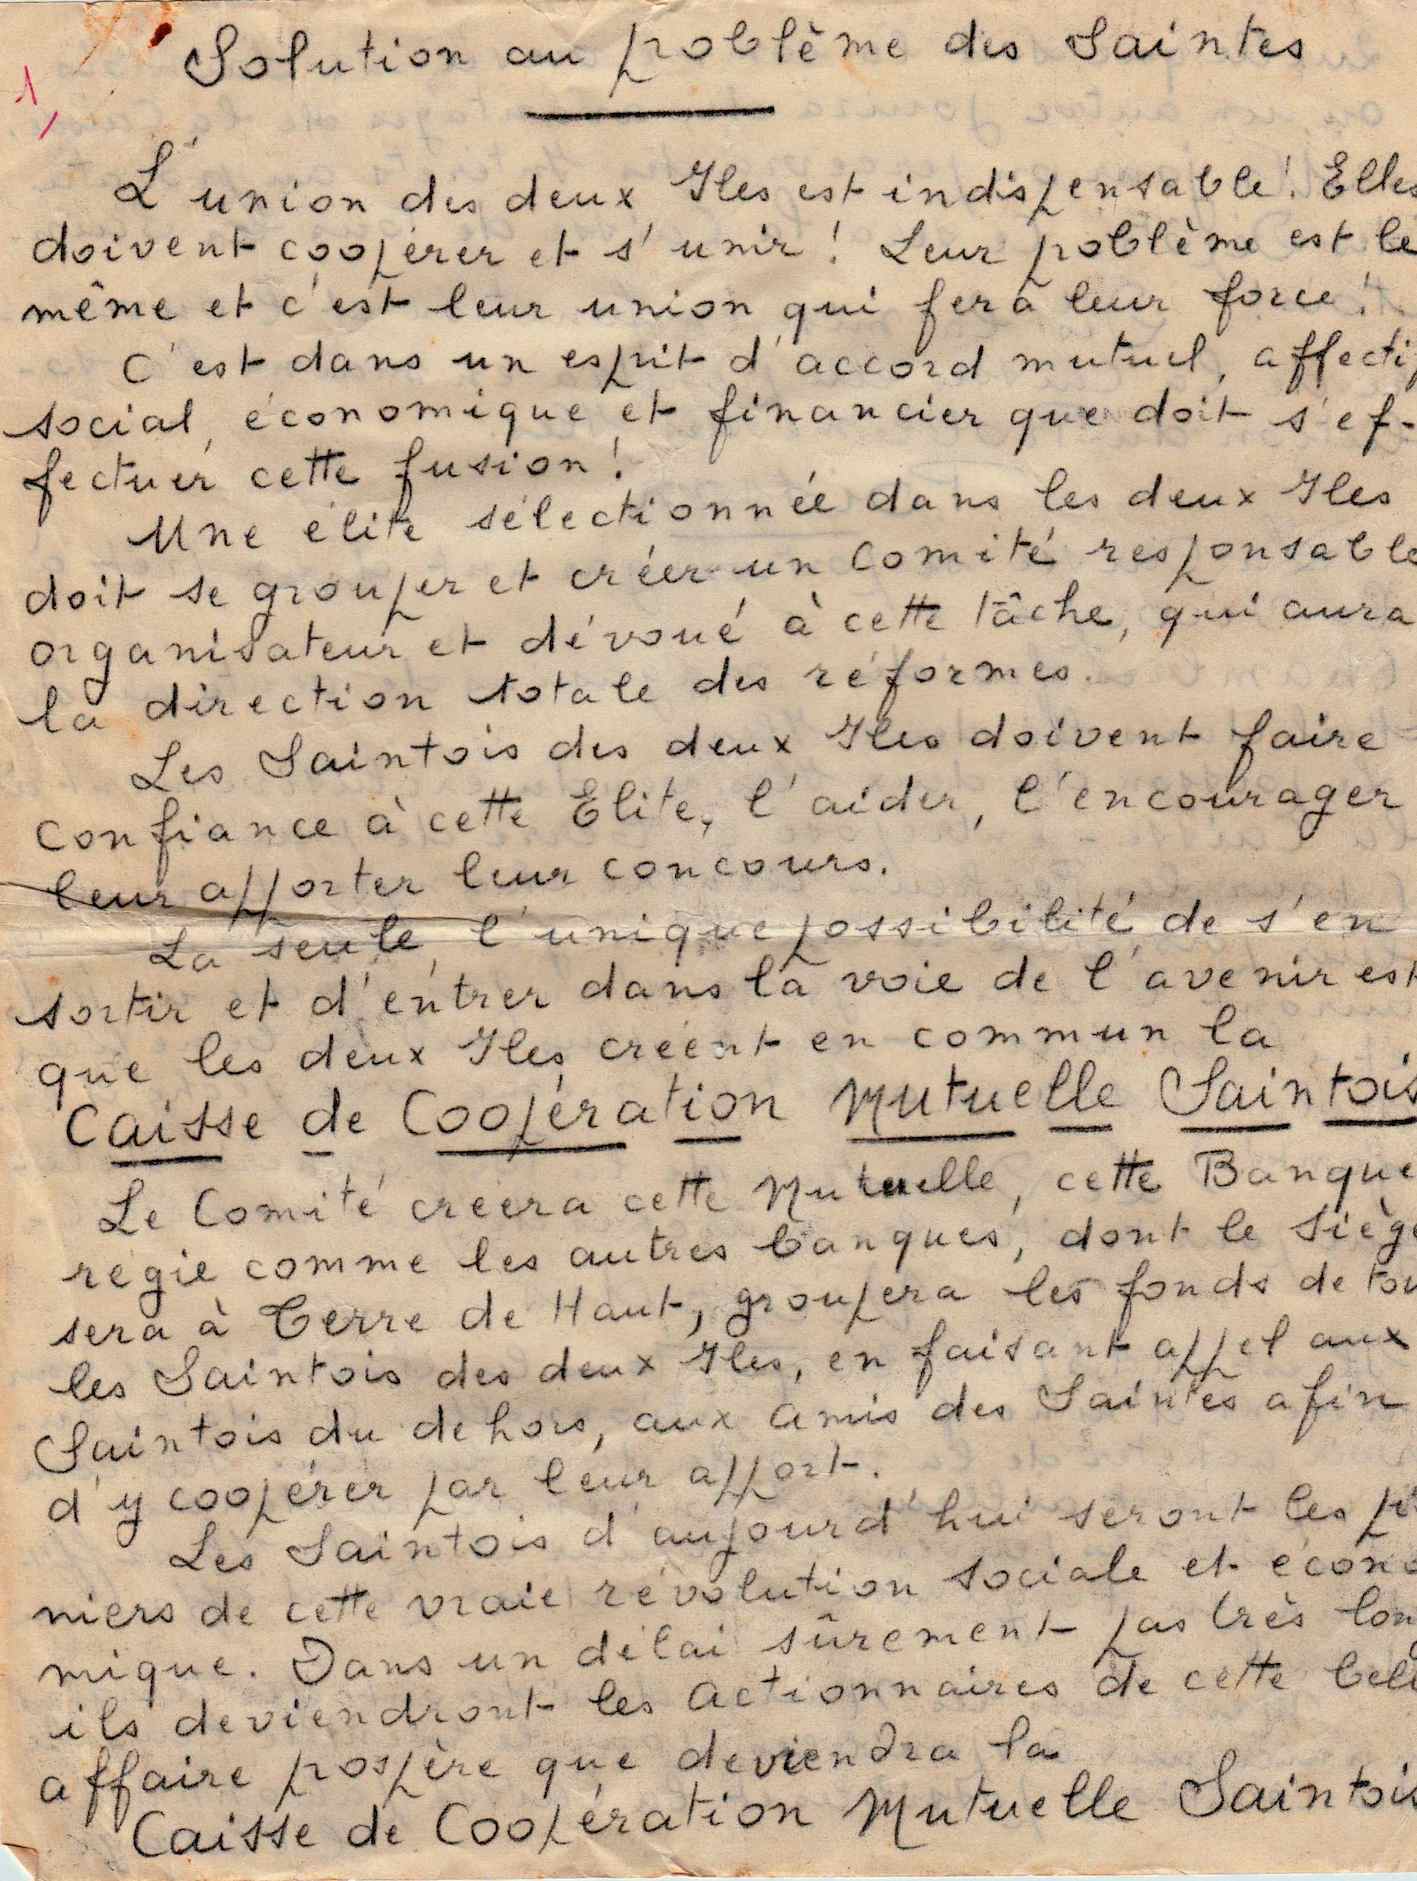 Solution au poblème des Saintes
1,
L'union des deux Iles est indispensable! Elles
doivent coopérer et s'unir! Leur poblème est le
même et c'est leur union qui fera leur force!
C'est dans un esprit d'accord mutuel, affectif
social, économique et financier que doit s'ef-
fectuer cette fusion!
Une élite sélectionnée dans les deux Iles
doit se grouper et créer un comité responsable
organisateur et dévoué à cette tâche, qui aura
la direction totale des réformes.
Les Saintois des deux Iles doivent faire
confiance à cette Elite, l'aider, l'encourager
leur apporter leur concours.
La seule, l'unique possibilité de s'en
sortir et d'entrer dans la voie de l'avenir est
que les deux Iles créent en commun la
Caisse de Coopération Mutuelle Saintois
Le Comité créera cette Mutuelle, cette Banque
régie comme les autres banques, dont le Siège
sera à Terre de Haut, groupera les fonds de tou
les Saintois des deux Iles, en faisant appel aux
Saintois du dehors, aux amis des Saintes afin
d'y coopérer par leur apport.
Les Saintois d'aujourd'hui seront les pi
niers de cette vraie révolution sociale et écono
mique. Dans un délai sûrement pas très long
ils deviendront les actionnaires de cette bell
affaire pospère que deviendra la
Caisse de Coopération Mutuelle Saintois